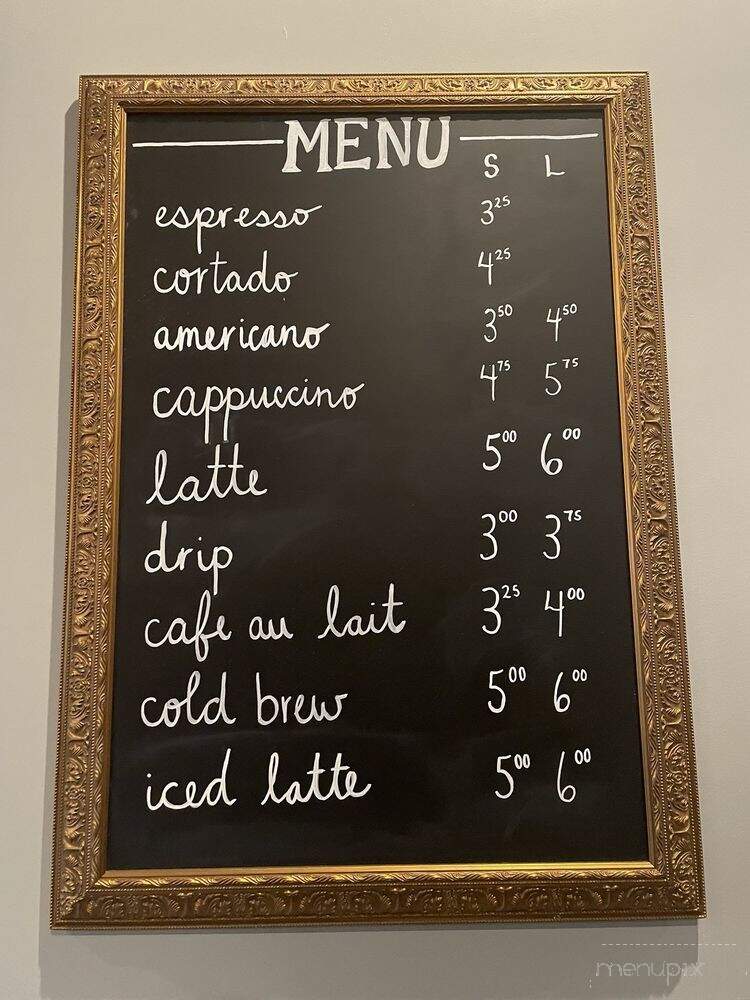 MENU
S L
espresso 3²⁵
cortado 4²⁵
americano 3⁵⁰ 4⁵⁰
cappuccino 4⁷⁵ 5⁷⁵
latte 5⁰⁰ 6⁰⁰
drip 3⁰⁰ 3⁷⁵
cafe au lait 3²⁵ 4⁰⁰
cold brew 5⁰⁰ 6⁰⁰
iced latte 5⁰⁰ 6⁰⁰
menupix